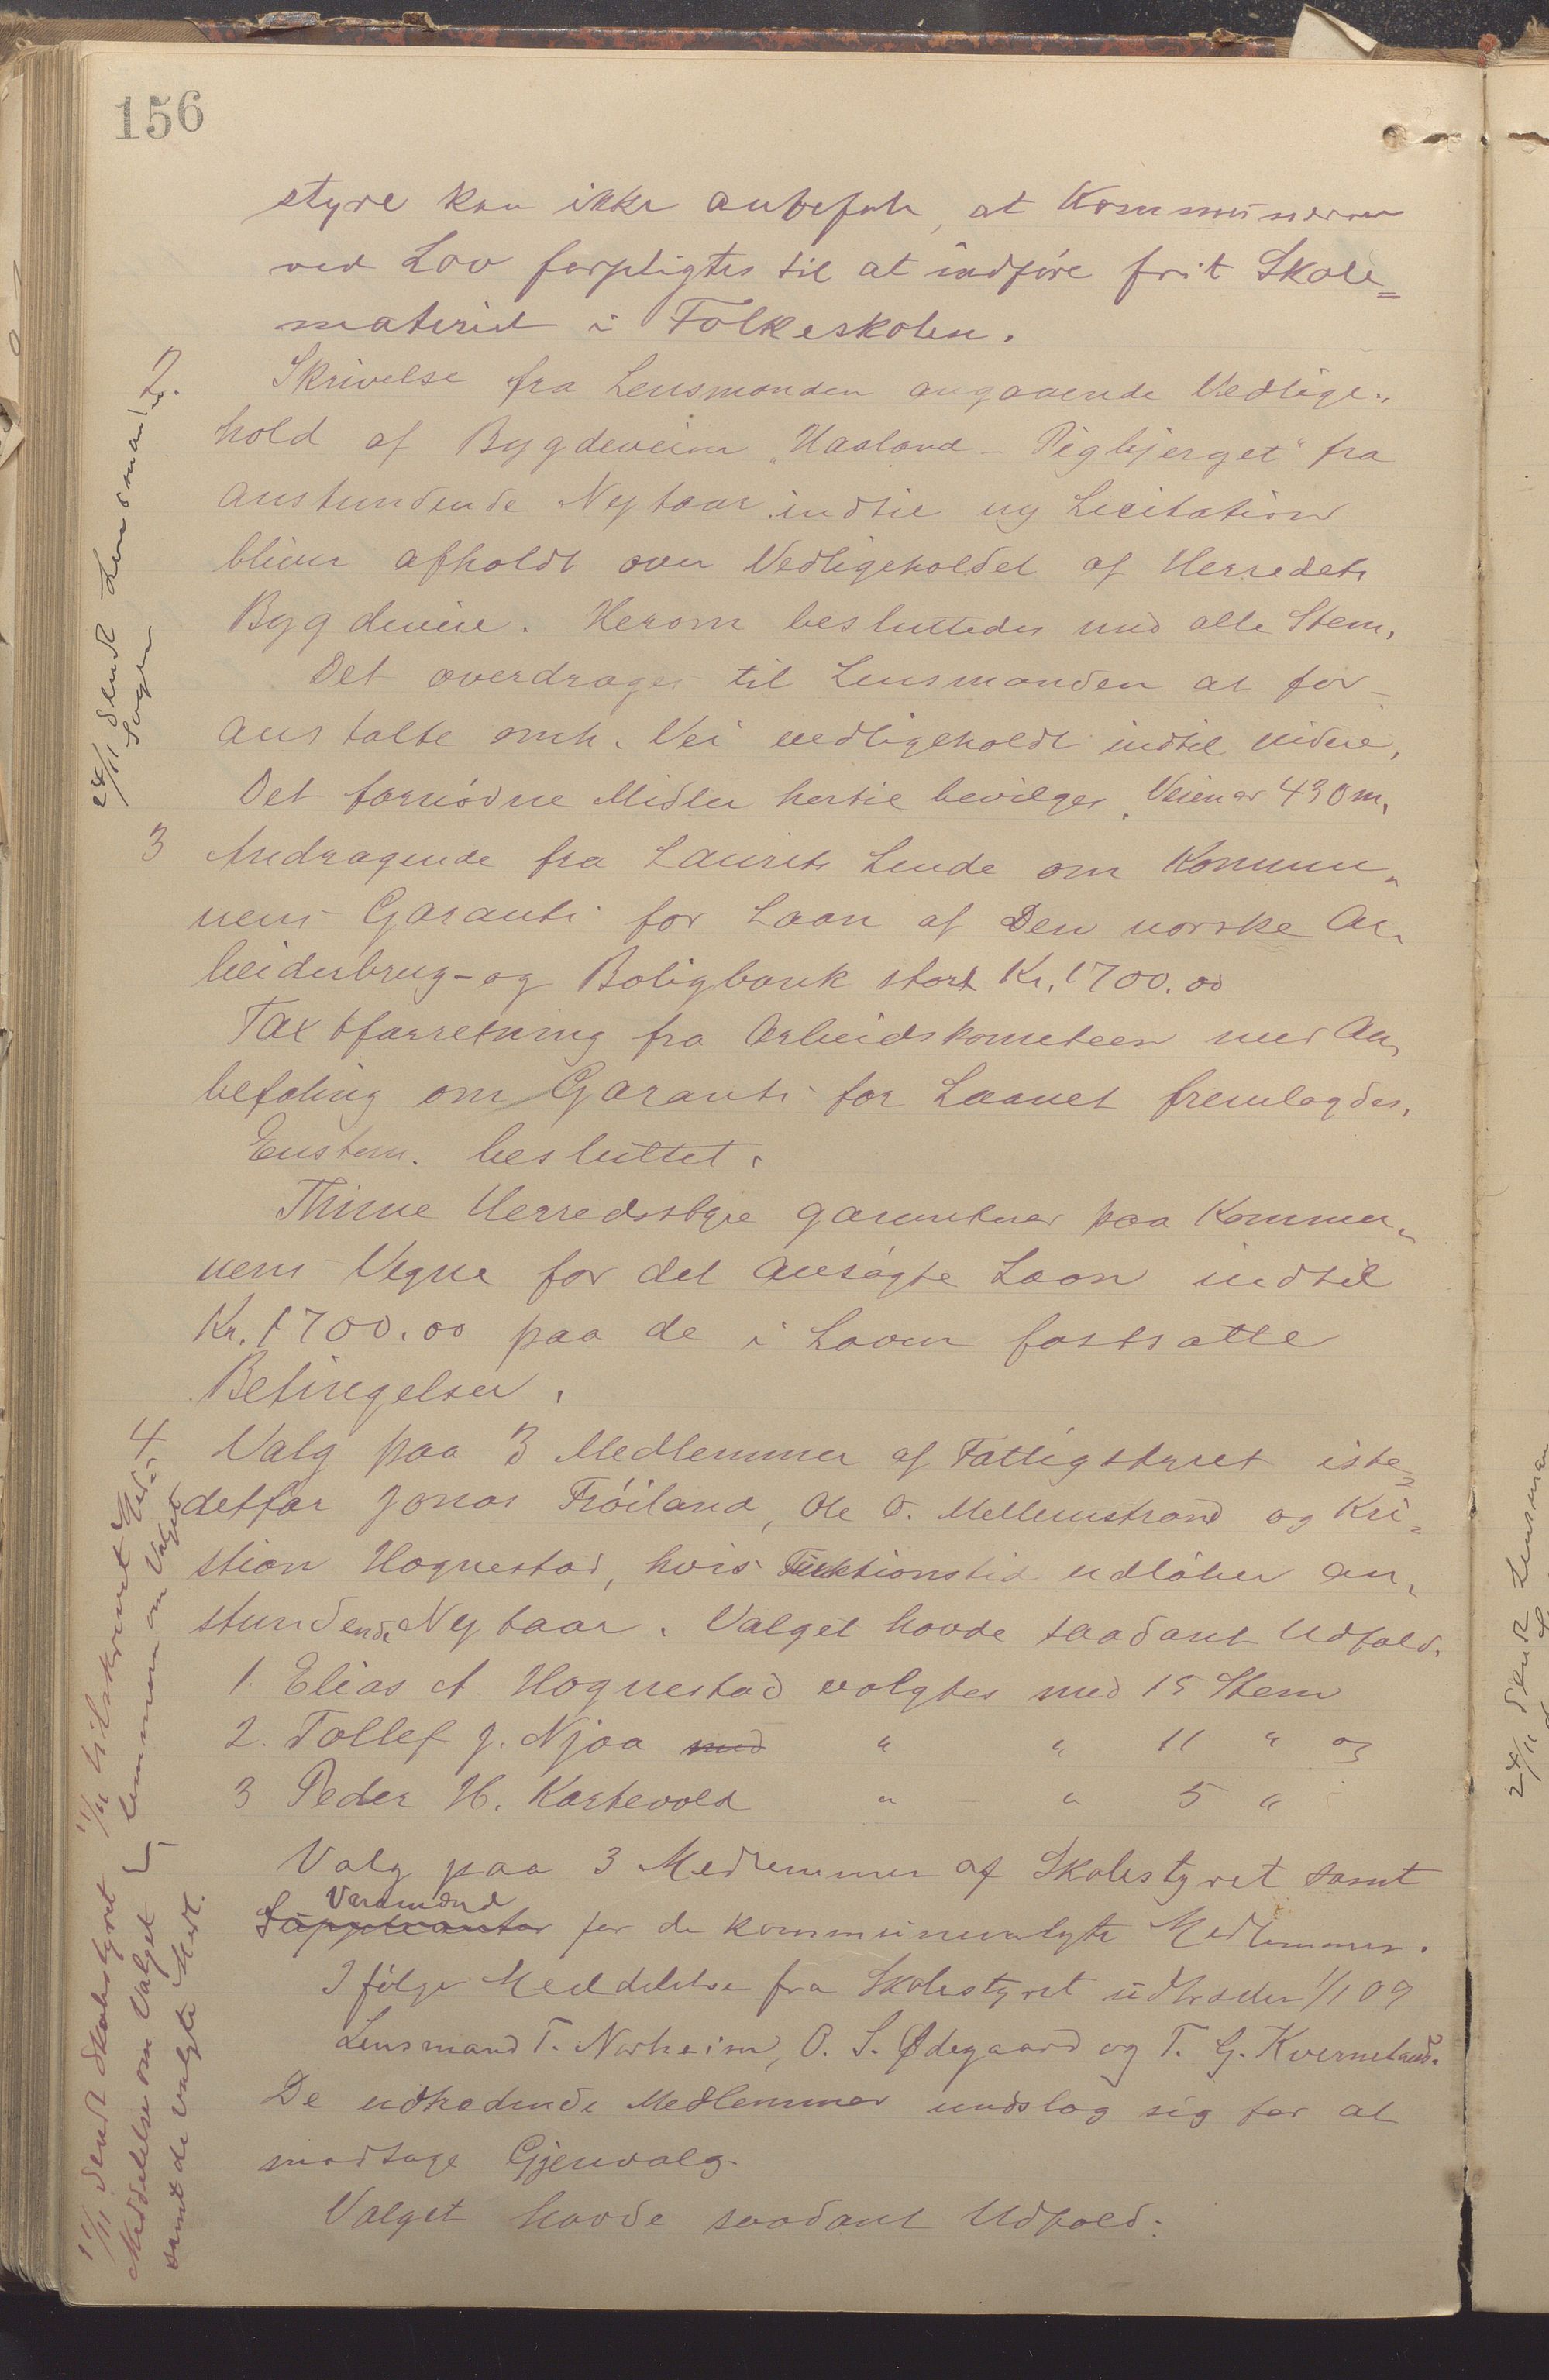 156
styre kan ikke anbefale, at Kommunerne
ved Lov forpligtes til at indføre frit Skole=
materiel i Folkeskolen.
2. Skrivelse fra Lensmanden angaaende Vedlige-
hold af Bygdeveien "Haaland - Tegbjerget" fra
anstundende Nytaar indtil ny Licitation
bliver afholdt over Vedligeholdet af Herredets
Bygdeveie. Herom besluttedes med alle Stem.
Det overdrages til Lensmanden at for-
anstalte omh. Vei vedligeholdt indtil videre,
Det fornødne Midler hertil bevilges. Veien er 430 m.
3 Andragende fra Laurits Lende om Kommu-
nens Garanti for Laan af Den norske Ar-
beiderbrug- og Boligbank stort Kr. 1700.00
Taxtforretning fra Arbeidskomiteen med An-
befaling om Garanti for Laanet fremlagdes.
Enstem. besluttet.
Thime Herredsstyre garanterer paa Kommu-
nens Vegne for det ansøgte Laan indtil
Kr. 1700.00 paa de i Loven fastsatte
Betingelser.
4 Valg paa 3 Medlemmer af Fattigstyret iste-
detfor Jonas Frøiland, Ole O. Mellemstrand og Kri-
stian Hognestad, hvis Funktionstid udløber an-
stundende Nytaar. Valget havde saadant Udfald.
1. Elias A. Hognestad valgtes med 15 Stem
2. Tollef J. Njaa med " " 11 " og
3 Peder H. Kartevold " " 5 "
Valg paa 3 Medlemmer af Skolestyret samt
Varamænd
Suppleanter for de kommunevalgte Medlemmer.
Ifølge Meddelelse fra Skolestyret udtræder 1/1 09
Lensmand T. Norheim, O. S. Ødegaard og T. G. Kverneland.
De udtrædende Medlemmer undslog sig for at
modtage Gjenvalg.
Valget havde saadant Udfald:
24/11 sendt Lensmand
Sagen
11/11 tilskrevet
lemmerne om Valget
11/11 sendt Skolestyret
Meddelelse om Valget
samt de valgte Medl.
24/11 sendt Lensman